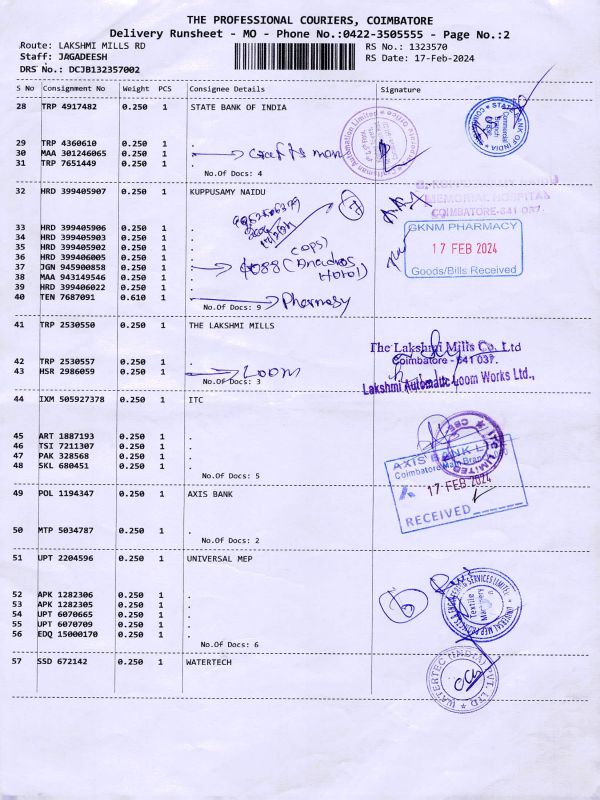 THE PROFESSIONAL COURIERS, COIMBATORE
Delivery Runsheet - MO - Phone No.:0422-3505555 - Page No.:2
Route: LAKSHMI MILLS RD RS No.: 1323570
Staff: JAGADEESH RS Date: 17-Feb-2024
DRS No.: DCJB132357002
S No Consignment No Weight PCS Consignee Details Signature
28 TRP 4917482 0.250 1 STATE BANK OF INDIA
29 TRP 4360610 0.250 1 .
30 MAA 301246065 0.250 1 Crafts man
31 TRP 7651449 0.250 1 .
No.Of Docs: 4
STATE BANK OF INDIA
Commercial Branch
32 HRD 399405907 0.250 1 KUPPUSAMY NAIDU
MEMORIAL HOSPITAL
COIMBATORE-641 037.
33 HRD 399405906 0.250 1 .
34 HRD 399405903 0.250 1 .
35 HRD 399405902 0.250 1 .
36 HRD 399406005 0.250 1 .
37 JGN 945900858 0.250 1
38 MAA 943149546 0.250 1 .
39 HRD 399406022 0.250 1 .
40 TEN 7687091 0.610 1 Pharmasy
No.Of Docs: 9
GKNM PHARMACY
17 FEB 2024
Goods/Bills Received
41 TRP 2530550 0.250 1 THE LAKSHMI MILLS
42 TRP 2530557 0.250 1 .
43 HSR 2986059 0.250 1 Loom
No.Of Docs: 3
The Lakshmi Mills Co. Ltd
Coimbatore - 641 037.
Lakshmi Automatic Loom Works Ltd.,
44 IXM 505927378 0.250 1 ITC
45 ART 1887193 0.250 1 .
46 TSI 7211307 0.250 1 .
47 PAK 328568 0.250 1 .
48 SKL 680451 0.250 1 .
No.Of Docs: 5
ITC LIMITED
49 POL 1194347 0.250 1 AXIS BANK
50 MTP 5034787 0.250 1 .
No.Of Docs: 2
AXIS BANK L
Coimbatore Main Bran
17 FEB 2024
RECEIVED
51 UPT 2204596 0.250 1 UNIVERSAL MEP
52 APK 1282306 0.250 1 .
53 APK 1282305 0.250 1 .
54 UPT 6070665 0.250 1 .
55 UPT 6070709 0.250 1 .
56 EDQ 15000170 0.250 1 .
No.Of Docs: 6
UNIVERSAL MEP PROJECTS & ENGINEERING SERVICES LIMITED
Textile Machinery
57 SSD 672142 0.250 1 WATERTECH
WATERTEC (INDIA) PVT. LTD